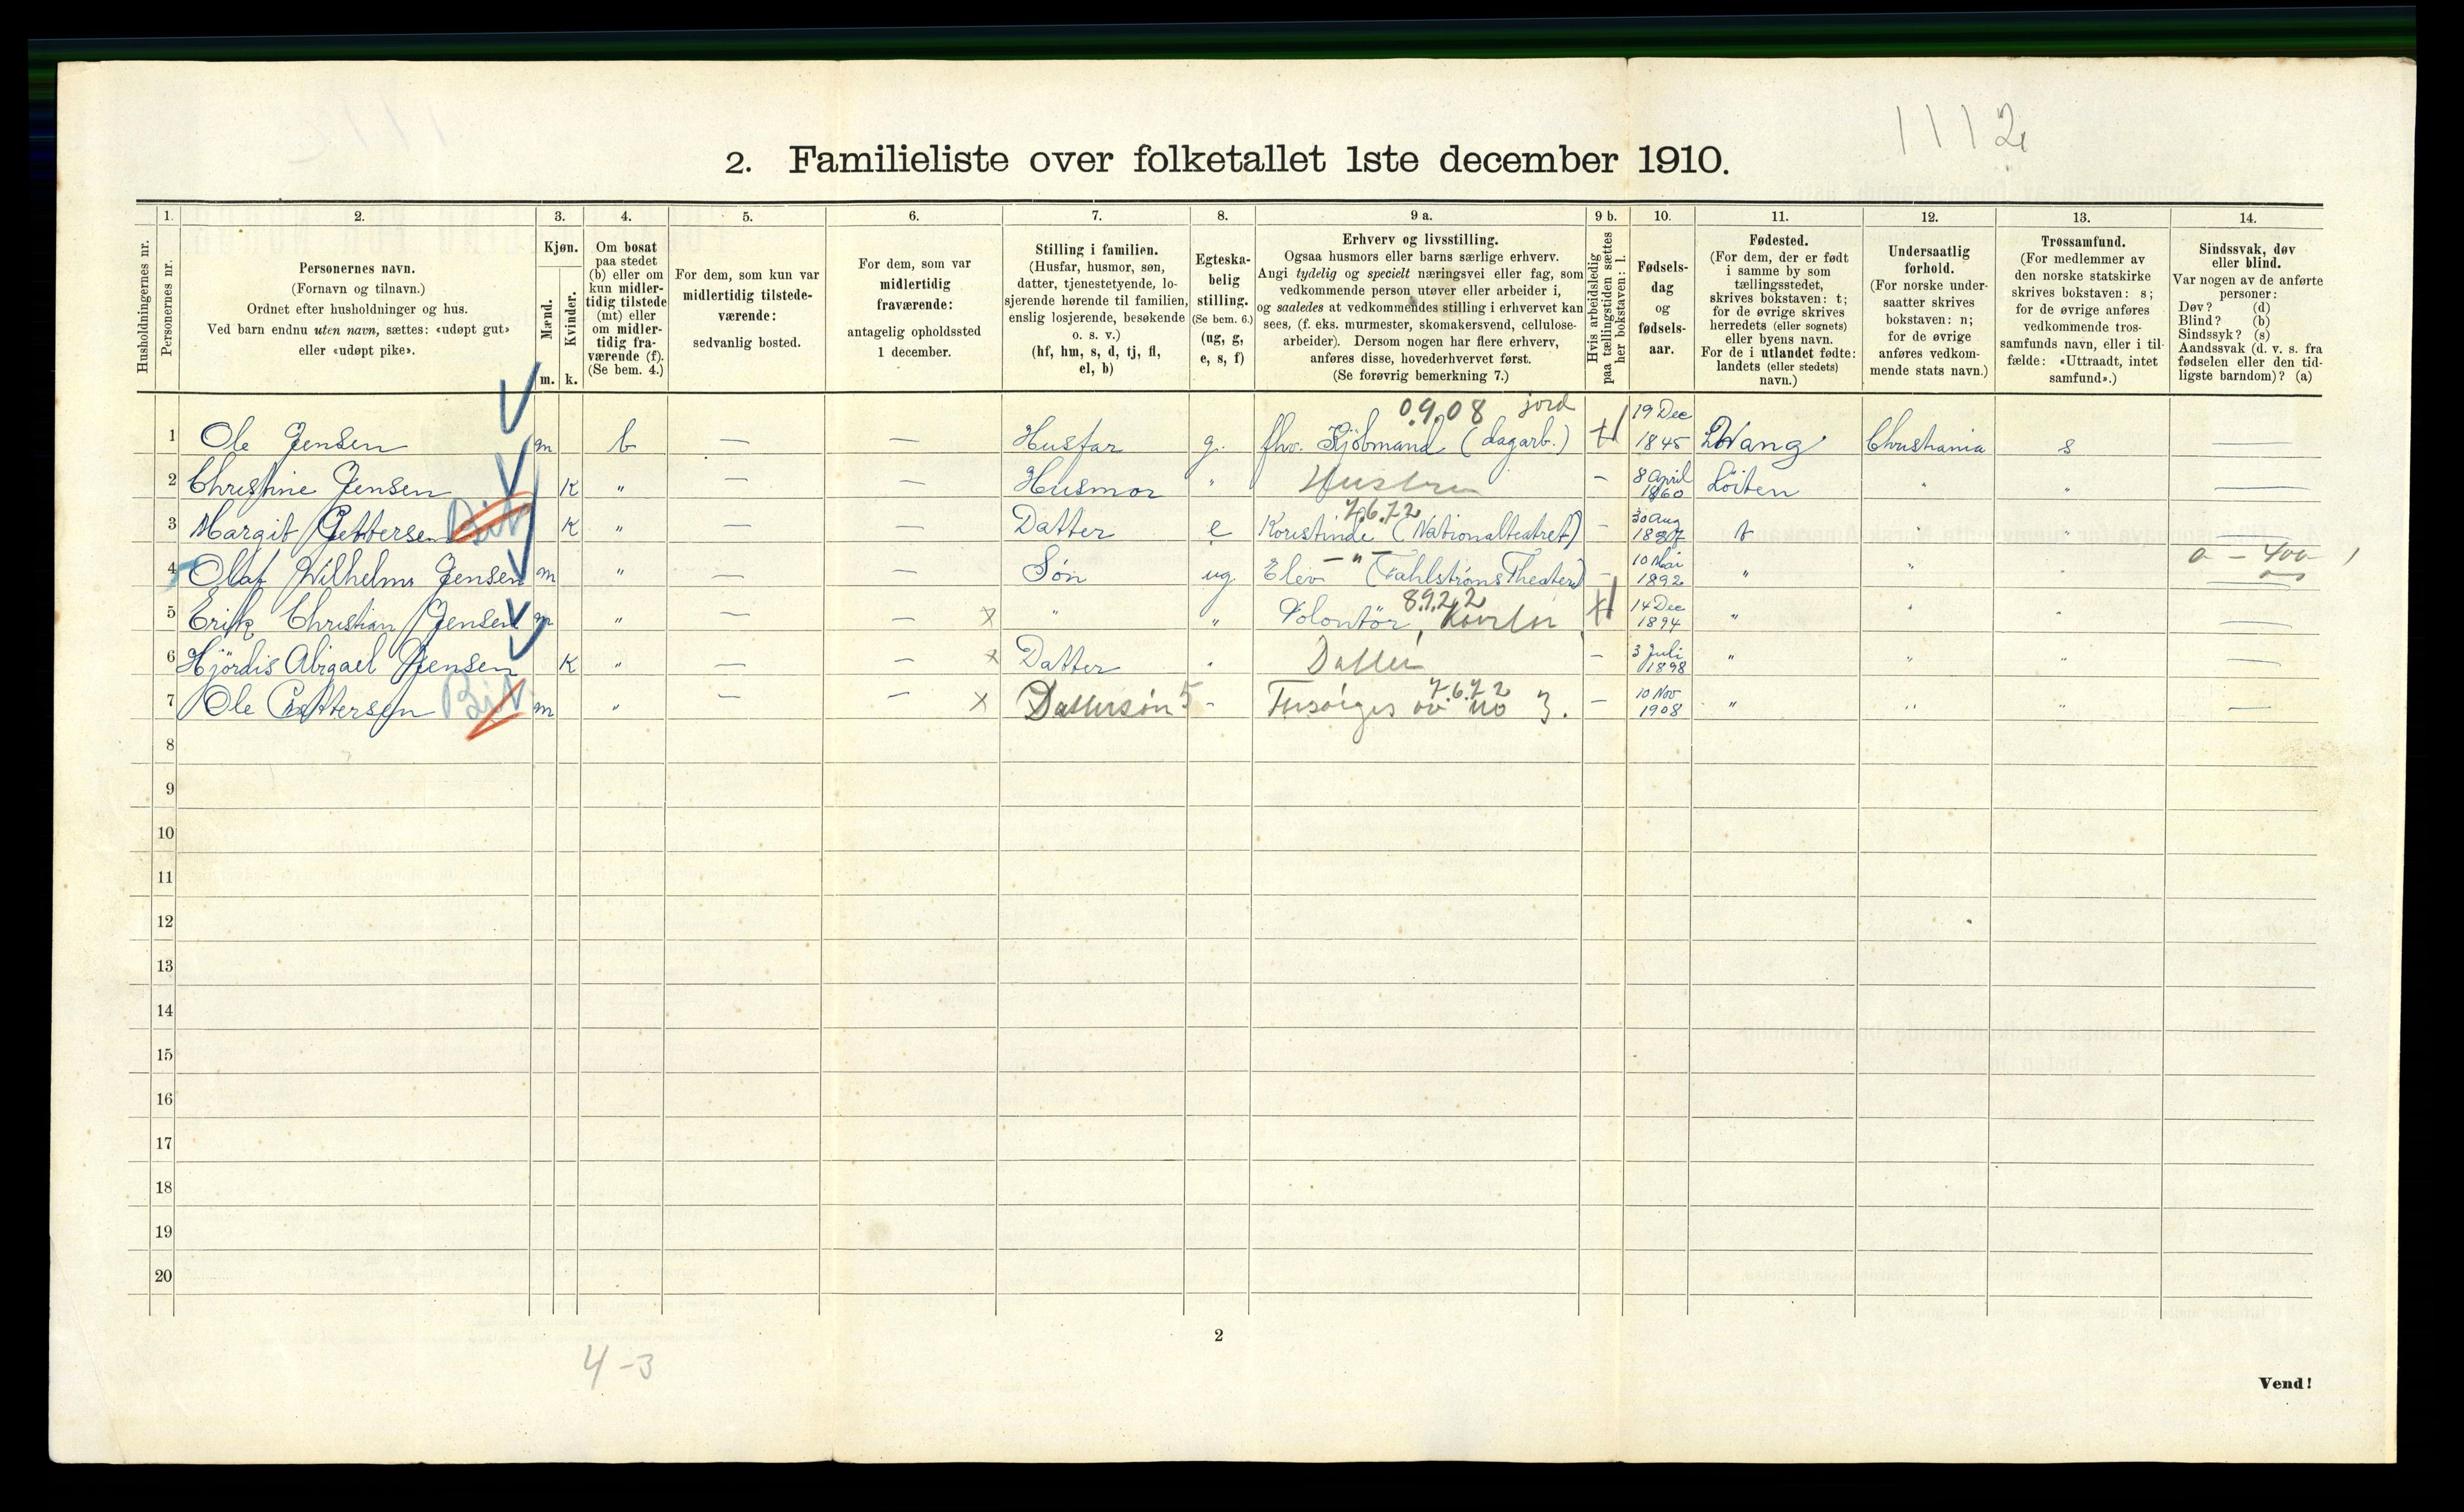 1112
2. Familieliste over folketallet 1ste december 1910.
Husholdningernes nr.
1. Personernes nr.
2. Personernes navn.
(Fornavn og tilnavn.)
Ordnet efter husholdninger og hus.
Ved barn endnu uten navn, sættes: «udøpt gut»
eller «udøpt pike».
3. Kjøn.
Mænd. m.
Kvinder. k.
4. Om bosat
paa stedet
(b) eller om
kun midler-
tidig tilstede
(mt) eller
om midler-
tidig fra-
værende (f).
(Se bem. 4.)
5. For dem, som kun var
midlertidig tilstede-
værende:
sedvanlig bosted.
6. For dem, som var
midlertidig
fraværende:
antagelig opholdssted
1 december.
7. Stilling i familien.
(Husfar, husmor, søn,
datter, tjenestetyende, lo-
sjerende hørende til familien,
enslig losjerende, besøkende
o. s. v.)
(hf, hm, s, d, tj, fl,
el, b)
8. Egteska-
belig
stilling.
(Se bem. 6.)
(ug, g,
e, s, f)
9 a. Erhverv og livsstilling.
Ogsaa husmors eller barns særlige erhverv.
Angi tydelig og specielt næringsvei eller fag, som
vedkommende person utøver eller arbeider i,
og saaledes at vedkommendes stilling i erhvervet kan
sees, (f. eks. murmester, skomakersvend, cellulose-
arbeider). Dersom nogen har flere erhverv,
anføres disse, hovederhvervet først.
(Se forøvrig bemerkning 7.)
9 b. Hvis arbeidsledig
paa tællingstiden sættes
her bokstaven: l.
10. Fødsels-
dag
og
fødsels-
aar.
11. Fødested.
(For dem, der er født
i samme by som
tællingsstedet,
skrives bokstaven: t;
for de øvrige skrives
herredets (eller sognets)
eller byens navn.
For de i utlandet fødte:
landets (eller stedets)
navn.)
12. Undersaatlig
forhold.
(For norske under-
saatter skrives
bokstaven: n;
for de øvrige
anføres vedkom-
mende stats navn.)
13. Trossamfund.
(For medlemmer av
den norske statskirke
skrives bokstaven: s;
for de øvrige anføres
vedkommende tros-
samfunds navn, eller i til-
fælde: «Uttraadt, intet
samfund».)
14. Sindssvak, døv
eller blind.
Var nogen av de anførte
personer:
Døv? (d)
Blind? (b)
Sindssyk? (s)
Aandssvak (d. v. s. fra
fødselen eller den tid-
ligste barndom)? (a)
0.9.08 jord
1 Ole Jensen m b — — Husfar g. fhv. Kjöbmand (dagarb.) 19 Dec 1845 Wang Christiania s —
2 Christine Jensen K " — — Husmor " Hustru - 8 April 1860 Löiten " " —
7.6.72
3 Margit Pettersen K " — — Datter e Koristinde (Nationalteatret) - 30 Aug t " "
4 Olaf Wilhelm Jensen m " — — Søn ug Elev —"— (Fahlstrøms Theater) - 10 Mai 1892 " " " —
8.9.22
5 Erik Christian Jensen m " — — x " " Volontör, 14 Dec 1894 " " " —
6 Hjördis Abigael Jensen K " — — x Datter " Datter - 3 Juli 1898 " " " —
7.6.72
7 Ole Pettersen m " — — x Dattersön 5 - Forsörges av no 3. - 10 Nov 1908 " " " —
8
9
10
11
12
13
14
15
16
17
18
19
20
2
4-3
Vend!